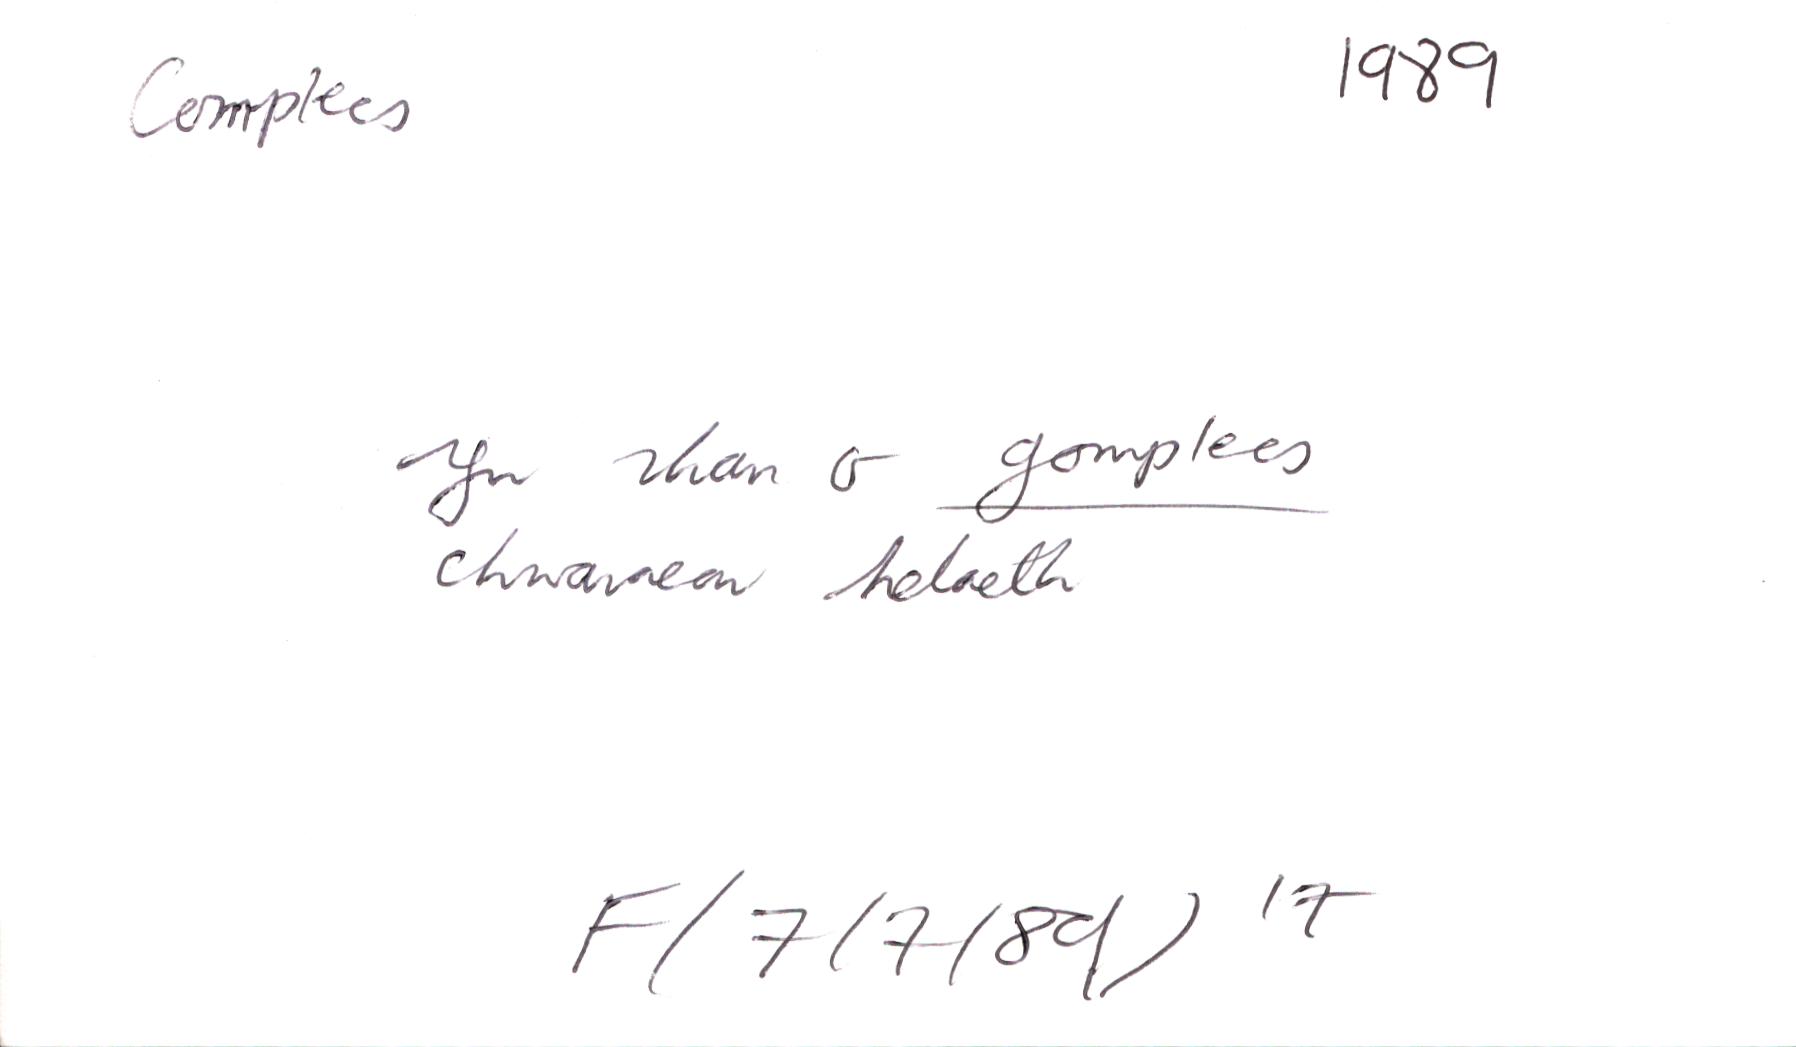 Complecs 1989
Yn rhan o gomplecs
chwaraeon helaeth
F(7/7/89) 17